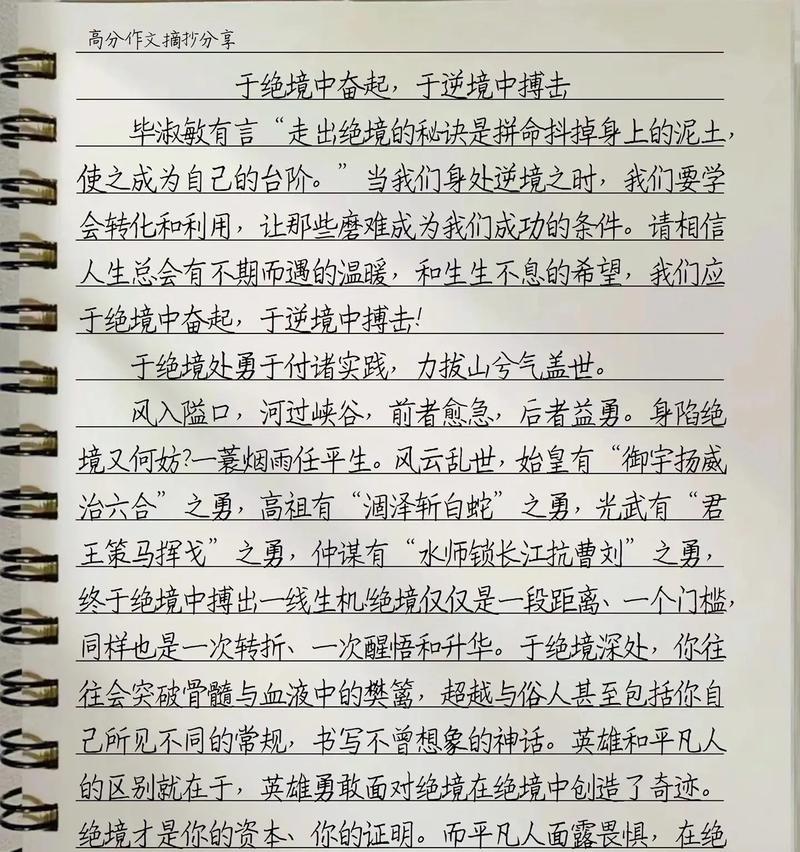 高分作文摘抄分享
于绝境中奋起，于逆境中搏击
毕淑敏有言“走出绝境的秘诀是拼命抖掉身上的泥土，
使之成为自己的台阶。”当我们身处逆境之时，我们要学
会转化和利用，让那些磨难成为我们成功的条件。请相信
人生总会有不期而遇的温暖，和生生不息的希望，我们应
于绝境中奋起，于逆境中搏击!
于绝境处勇于付诸实践，力拔山兮气盖世。
风入隘口，河过峡谷，前者愈急，后者益勇。身陷绝
境又何妨?一蓑烟雨任平生。风云乱世，始皇有“御宇扬威
治六合”之勇，高祖有“涸泽斩白蛇”之勇，光武有“君
王策马挥戈”之勇，仲谋有“水师锁长江抗曹刘”之勇，
终于绝境中搏出一线生机!绝境仅仅是一段距离、一个门槛，
同样也是一次转折、一次醒悟和升华。于绝境深处，你往
往会突破骨髓与血液中的樊篱，超越与俗人甚至包括你自
己所见不同的常规，书写不曾想象的神话。英雄和平凡人
的区别就在于，英雄勇敢面对绝境在绝境中创造了奇迹。
绝境才是你的资本、你的证明。而平凡人面露畏惧，在绝